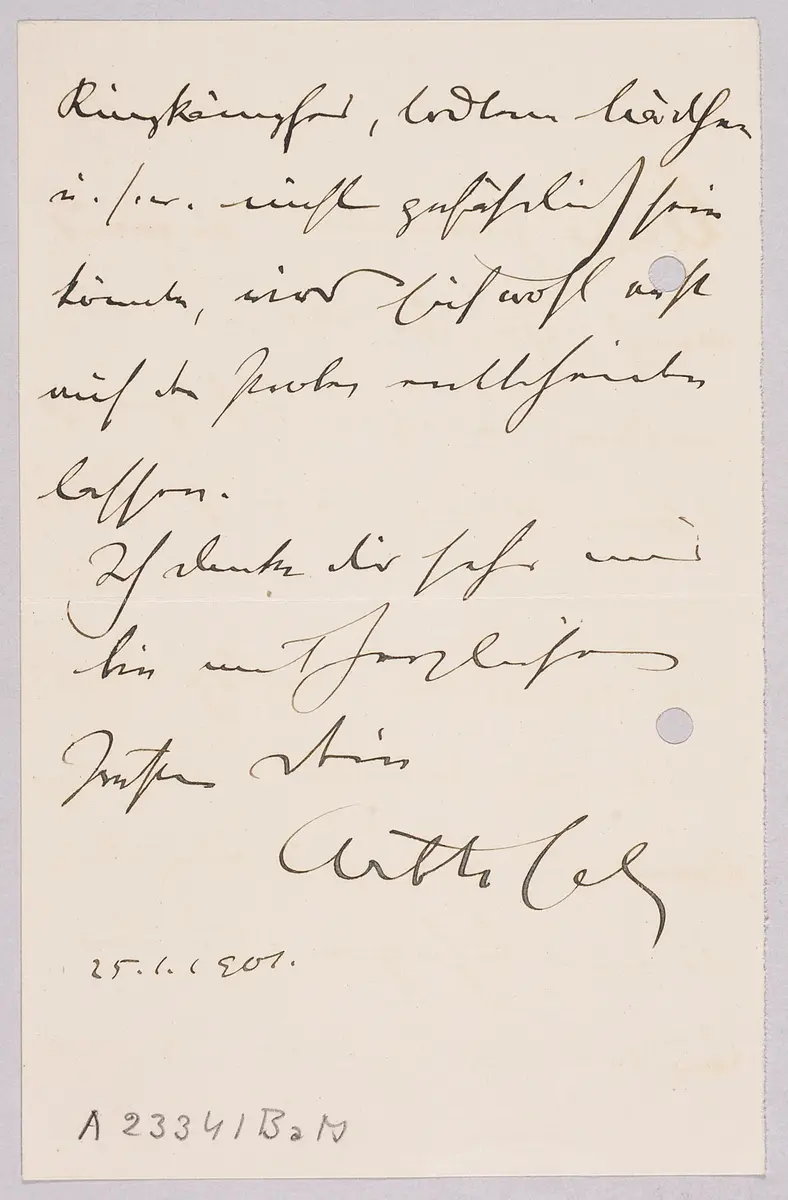 Ringkämpfer, todtem Mädchen
u. s. w. nicht gefährlich sein
könnte, wird sich wohl erst
auf den Proben entscheiden
lassen.
Ich danke dir sehr und
bin mit herzlichem
Grüßen dein
ArthSch
25.1.1901.
A 23341 BaM